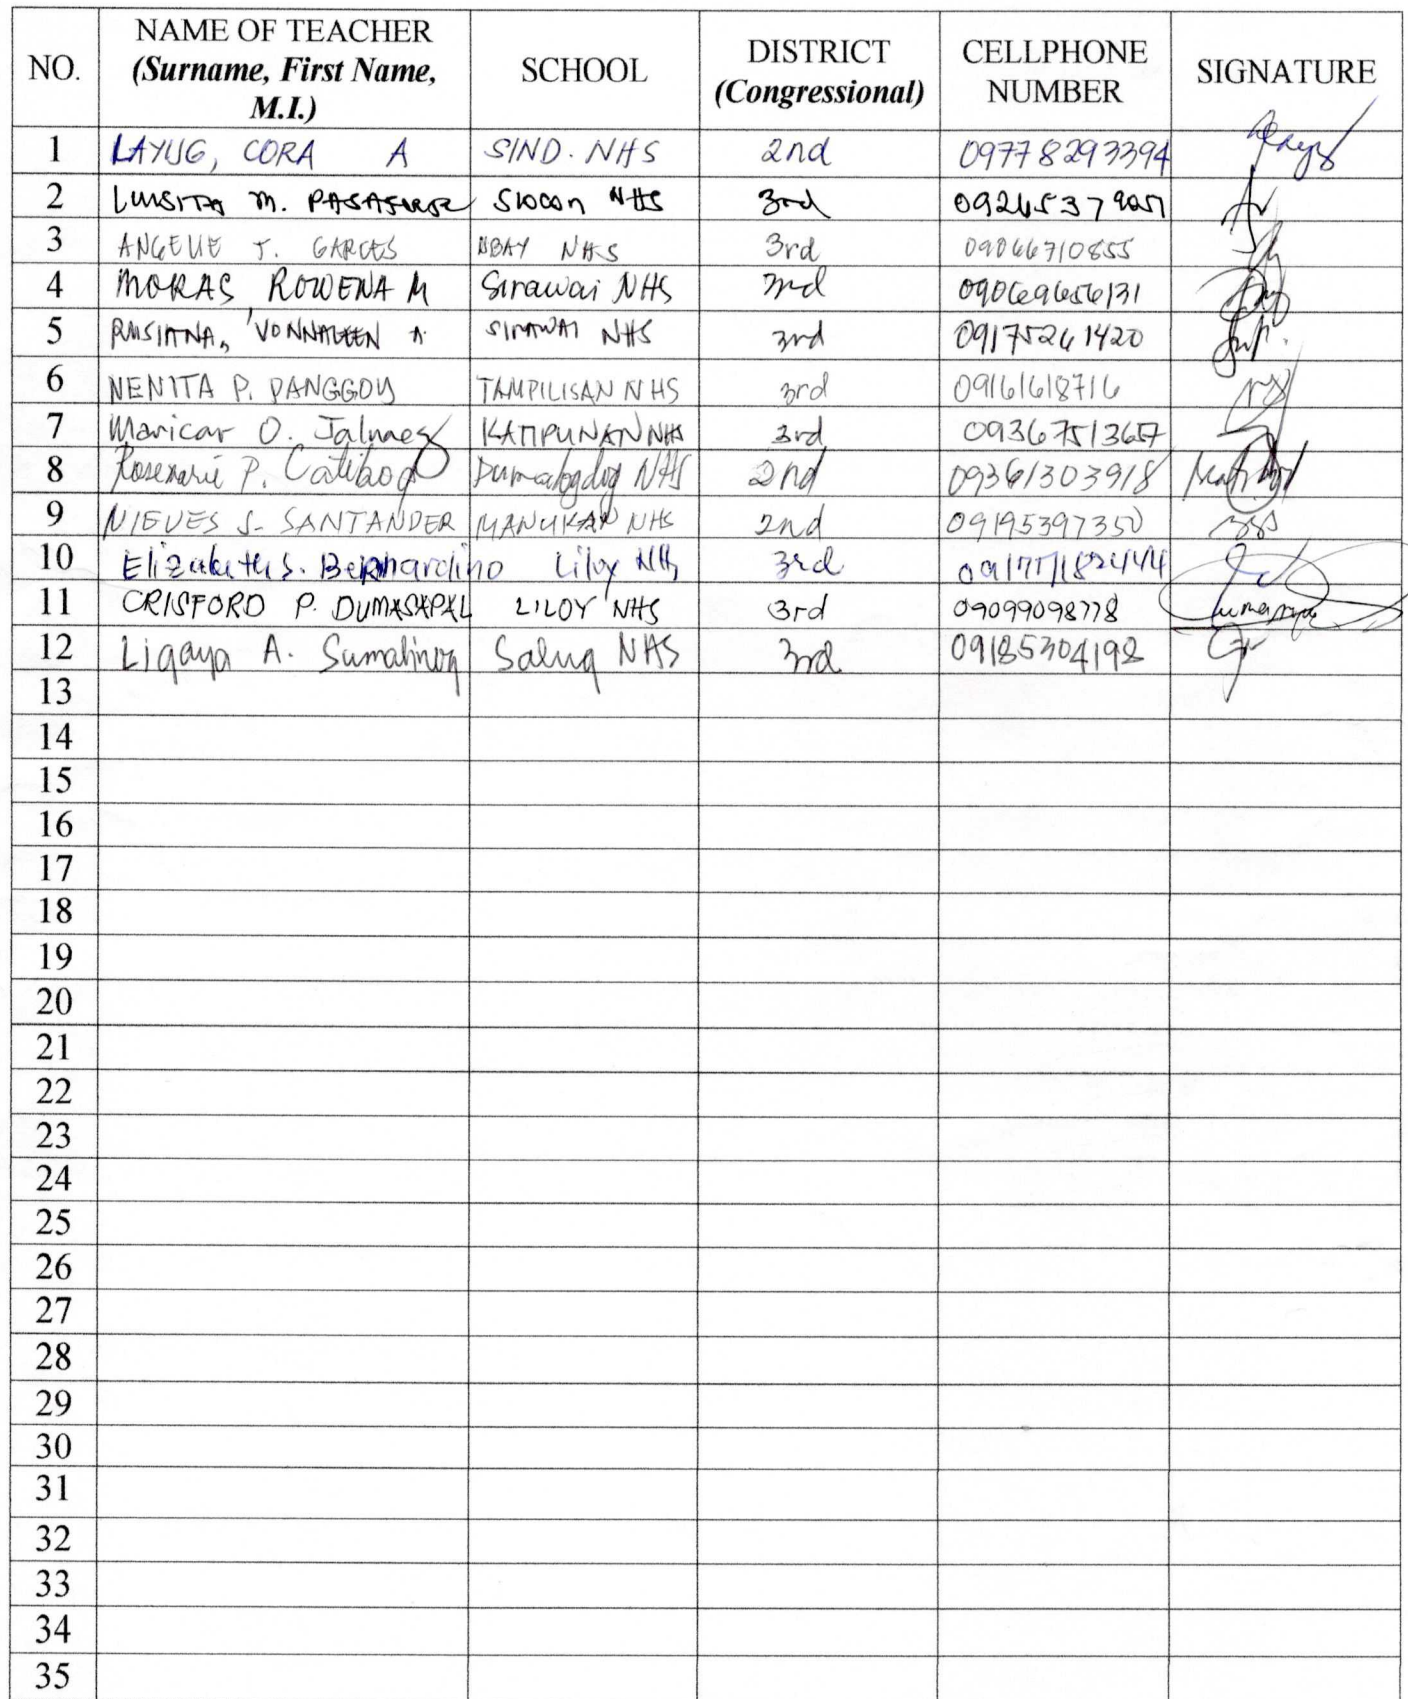 NO. NAME OF TEACHER (Surname, First Name, M.I.) SCHOOL DISTRICT (Congressional) CELLPHONE NUMBER SIGNATURE
1 LAYUG, CORA A SIND. NHS 2nd 09778293394
2 M. NHS 3rd
3 T. GARCES NHS 3rd 09066710855
4 MORAS, ROWENA M Sirawai NHS 3rd 09069656131
5 A. SIRAWAI NHS 3rd 09175261420
6 NENITA P. PANGGOY TAMPILISAN NHS 3rd 09161618716
7 Maricar O. KATIPUNAN NHS 3rd 09367513657
8 Rosemarie P. Catibog NHS 2nd 09361303918
9 NIEVES S. SANTANDER MANUKAN NHS 2nd 09195397350
10 Elizabeth S. Bernardino Liloy NHS 3rd
11 CRISFORD P. DUMASAPAL LILOY NHS 3rd 09099098778
12 Ligaya A. Sumalinog Salug NHS 3rd 09185304198
13
14
15
16
17
18
19
20
21
22
23
24
25
26
27
28
29
30
31
32
33
34
35